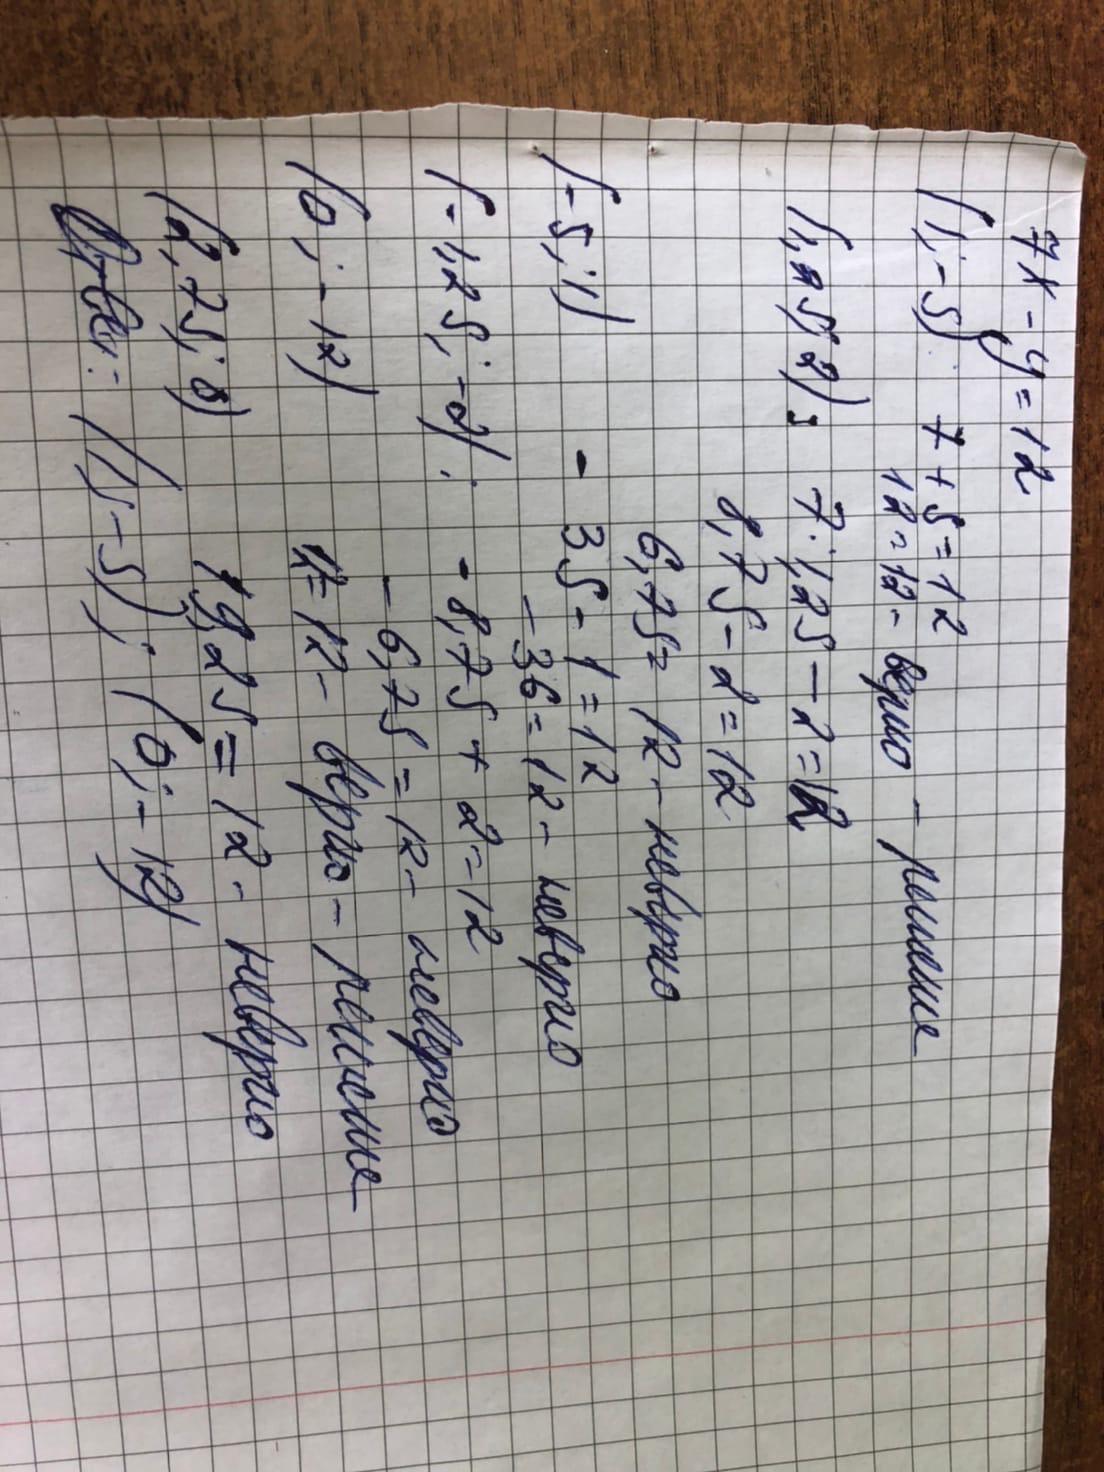 7x - y = 12
(1; -5) 7 + 5 = 12
12 = 12 - верно - решение
(1,25; 2): 7 · 1,25 - 2 = 12
8,75 - 2 = 12
6,75 = 12 - неверно
(-5; 1) - 35 - 1 = 12
- 36 = 12 - неверно
(-1,25; -2): - 8,75 + 2 = 12
- 6,75 = 12 - неверно
(0; -12) 12 = 12 - верно - решение
(2,75; 0) 19,25 = 12 - неверно
Ответ: (1; -5); (0; -12)